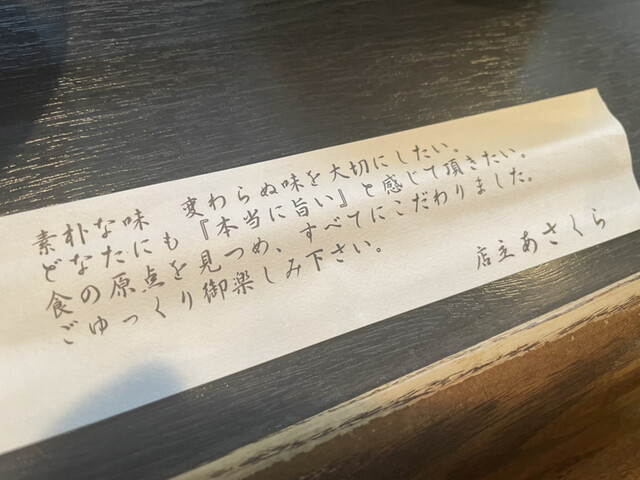 素朴な味　変わらぬ味を大切にしたい。
どなたにも『本当に旨い』と感じて頂きたい。
食の原点を見つめ、すべてにこだわりました。
ごゆっくり御楽しみ下さい。
店主あさくら